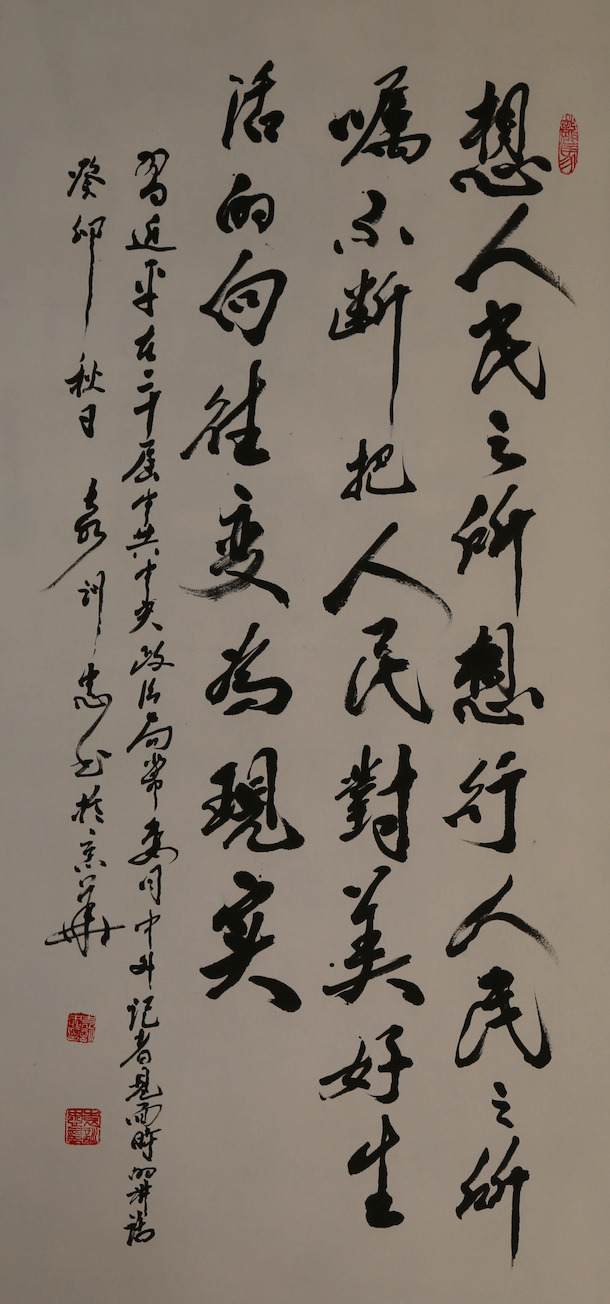 想人民之所想行人民之所
嘱不断把人民對美好生
活的向往变為現实
习近平在二十届中共中央政治局常委同中外记者見面時的讲话
癸卯秋日 袁训忠书於京華